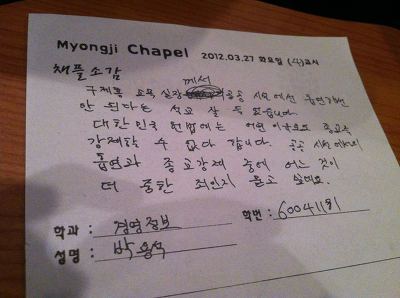 Myongji Chapel 2012.03.27 화요일 (4)교시
채플소감
께서
구제홍 교목 실장 공공 시설에서 흡연
안 된다는 설교 잘 들었습니다.
대한민국 헌법에는 어떤 이유로도 종교를
강제할 수 없다 합니다. 공공 시설에서의
흡연과 종교강제 중에 어느 것이
더 중한 죄인지 묻고 싶네요.
학과 : 경영정보 학번 :
성명 : 박용석